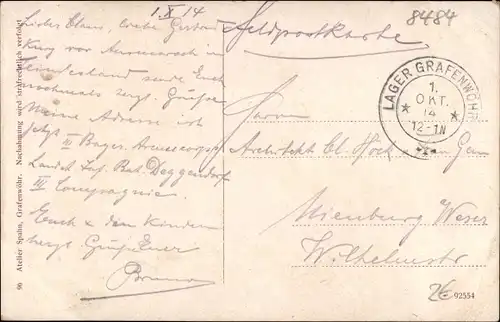 1.X.14
8484
Feldpostkarte
LAGER GRAFENWÖHR
1.
OKT.
14
12-1 N
Lieber Claus, liebe Gertrud
Kurz vor Ausmarsch in
Feindesland sende Euch
nochmals herzl. Grüße
Meine Adresse ist
jetzt II Bayer. Armeecorps
Landst. Inf. Bat. Deggendorf
III Compagnie.
Euch & den Kindern
herzl. Grüße Euer
Bruno
Herrn
Architekt Cl. Hock
Nienburg a/Weser
Wilhelmstr
96 Atelier Spahn, Grafenwöhr. Nachahmung wird strafrechtlich verfolgt
2€
92554